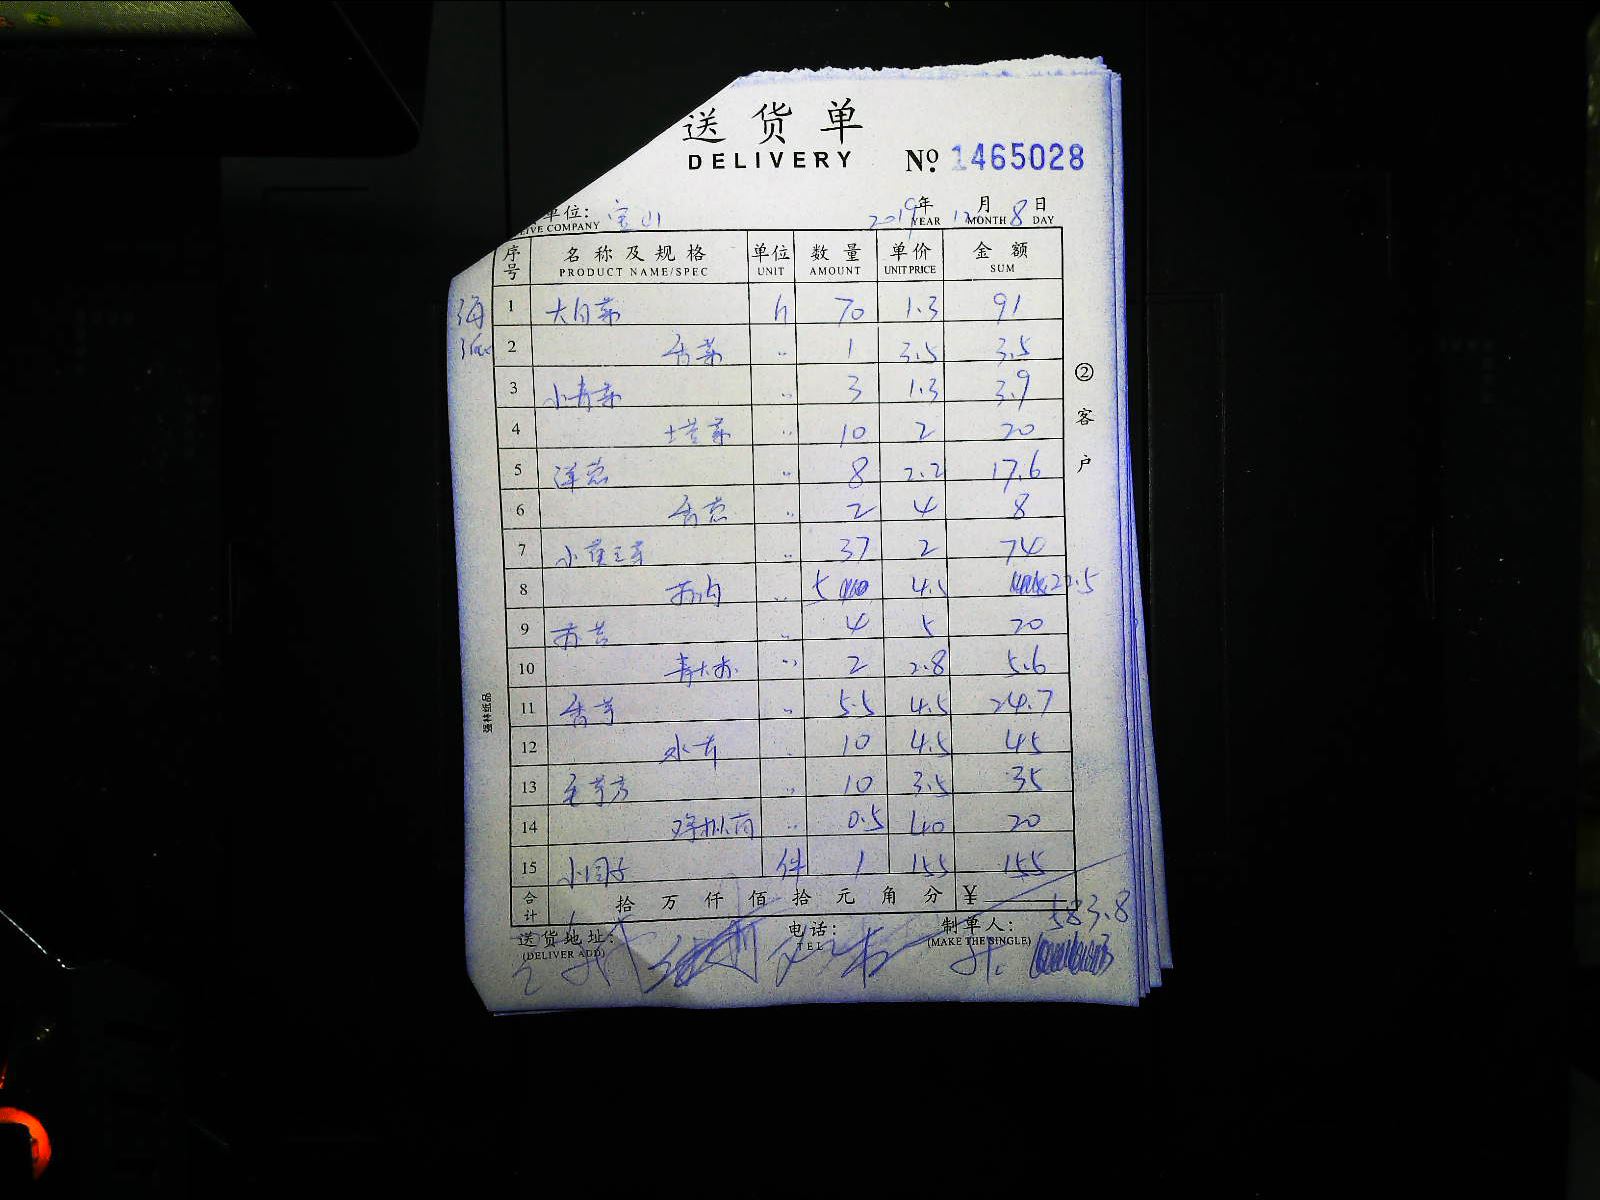 送货单
DELIVERY
№ 1465028
单位: 宝山 2019年 12月 8日
IVE COMPANY YEAR MONTH DAY
序号 名称及规格 单位 数量 单价 金额
PRODUCT NAME/SPEC UNIT AMOUNT UNIT PRICE SUM
1 大白菜 斤 70 1.3 91
2 香菜 〃 1 3.5 3.5
3 小青菜 〃 3 1.3 3.9
4 塔菜 〃 10 2 20
5 洋葱 〃 8 2.2 17.6
6 香葱 〃 2 4 8
7 小黄豆芽 〃 37 2 74
8 〃 5 4.5 22.5
9 〃 4 5 20
10 〃 2 2.8 5.6
11 香芋 〃 5.5 4.5 24.7
12 水芹 10 4.5 45
13 〃 10 3.5 35
14 〃 0.5 40 20
15 小圆子 件 1 155 155
合计 拾 万 仟 佰 拾 元 角 分 ¥
583.8
送货地址: 电话: 制单人:
(DELIVER ADD) TEL (MAKE THE SINGLE)
② 客户
强林纸品